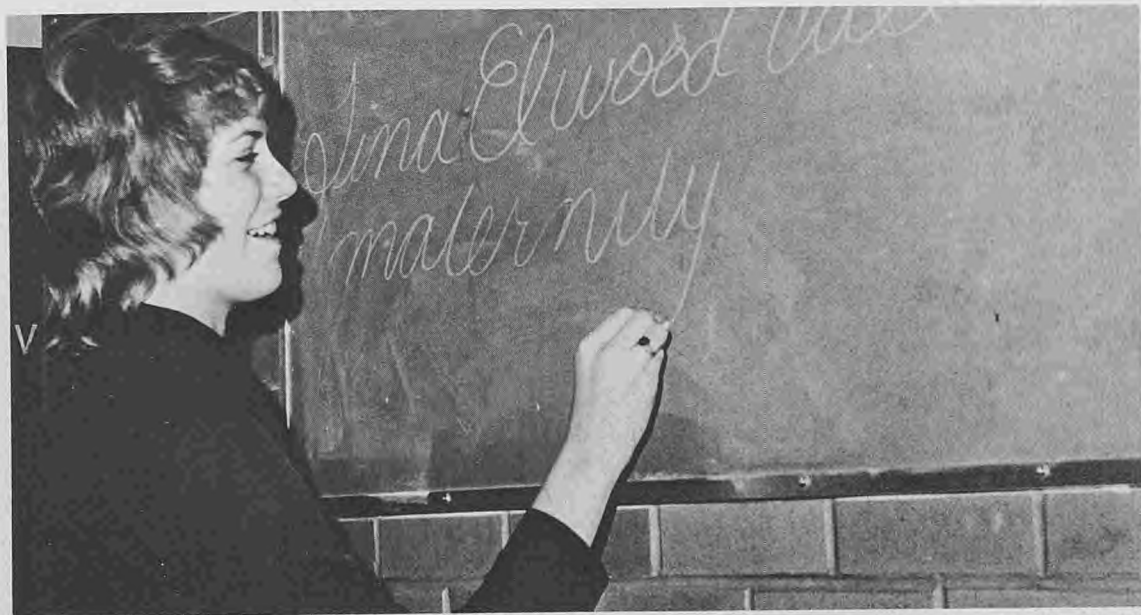 Tina Elwood
maternity
V